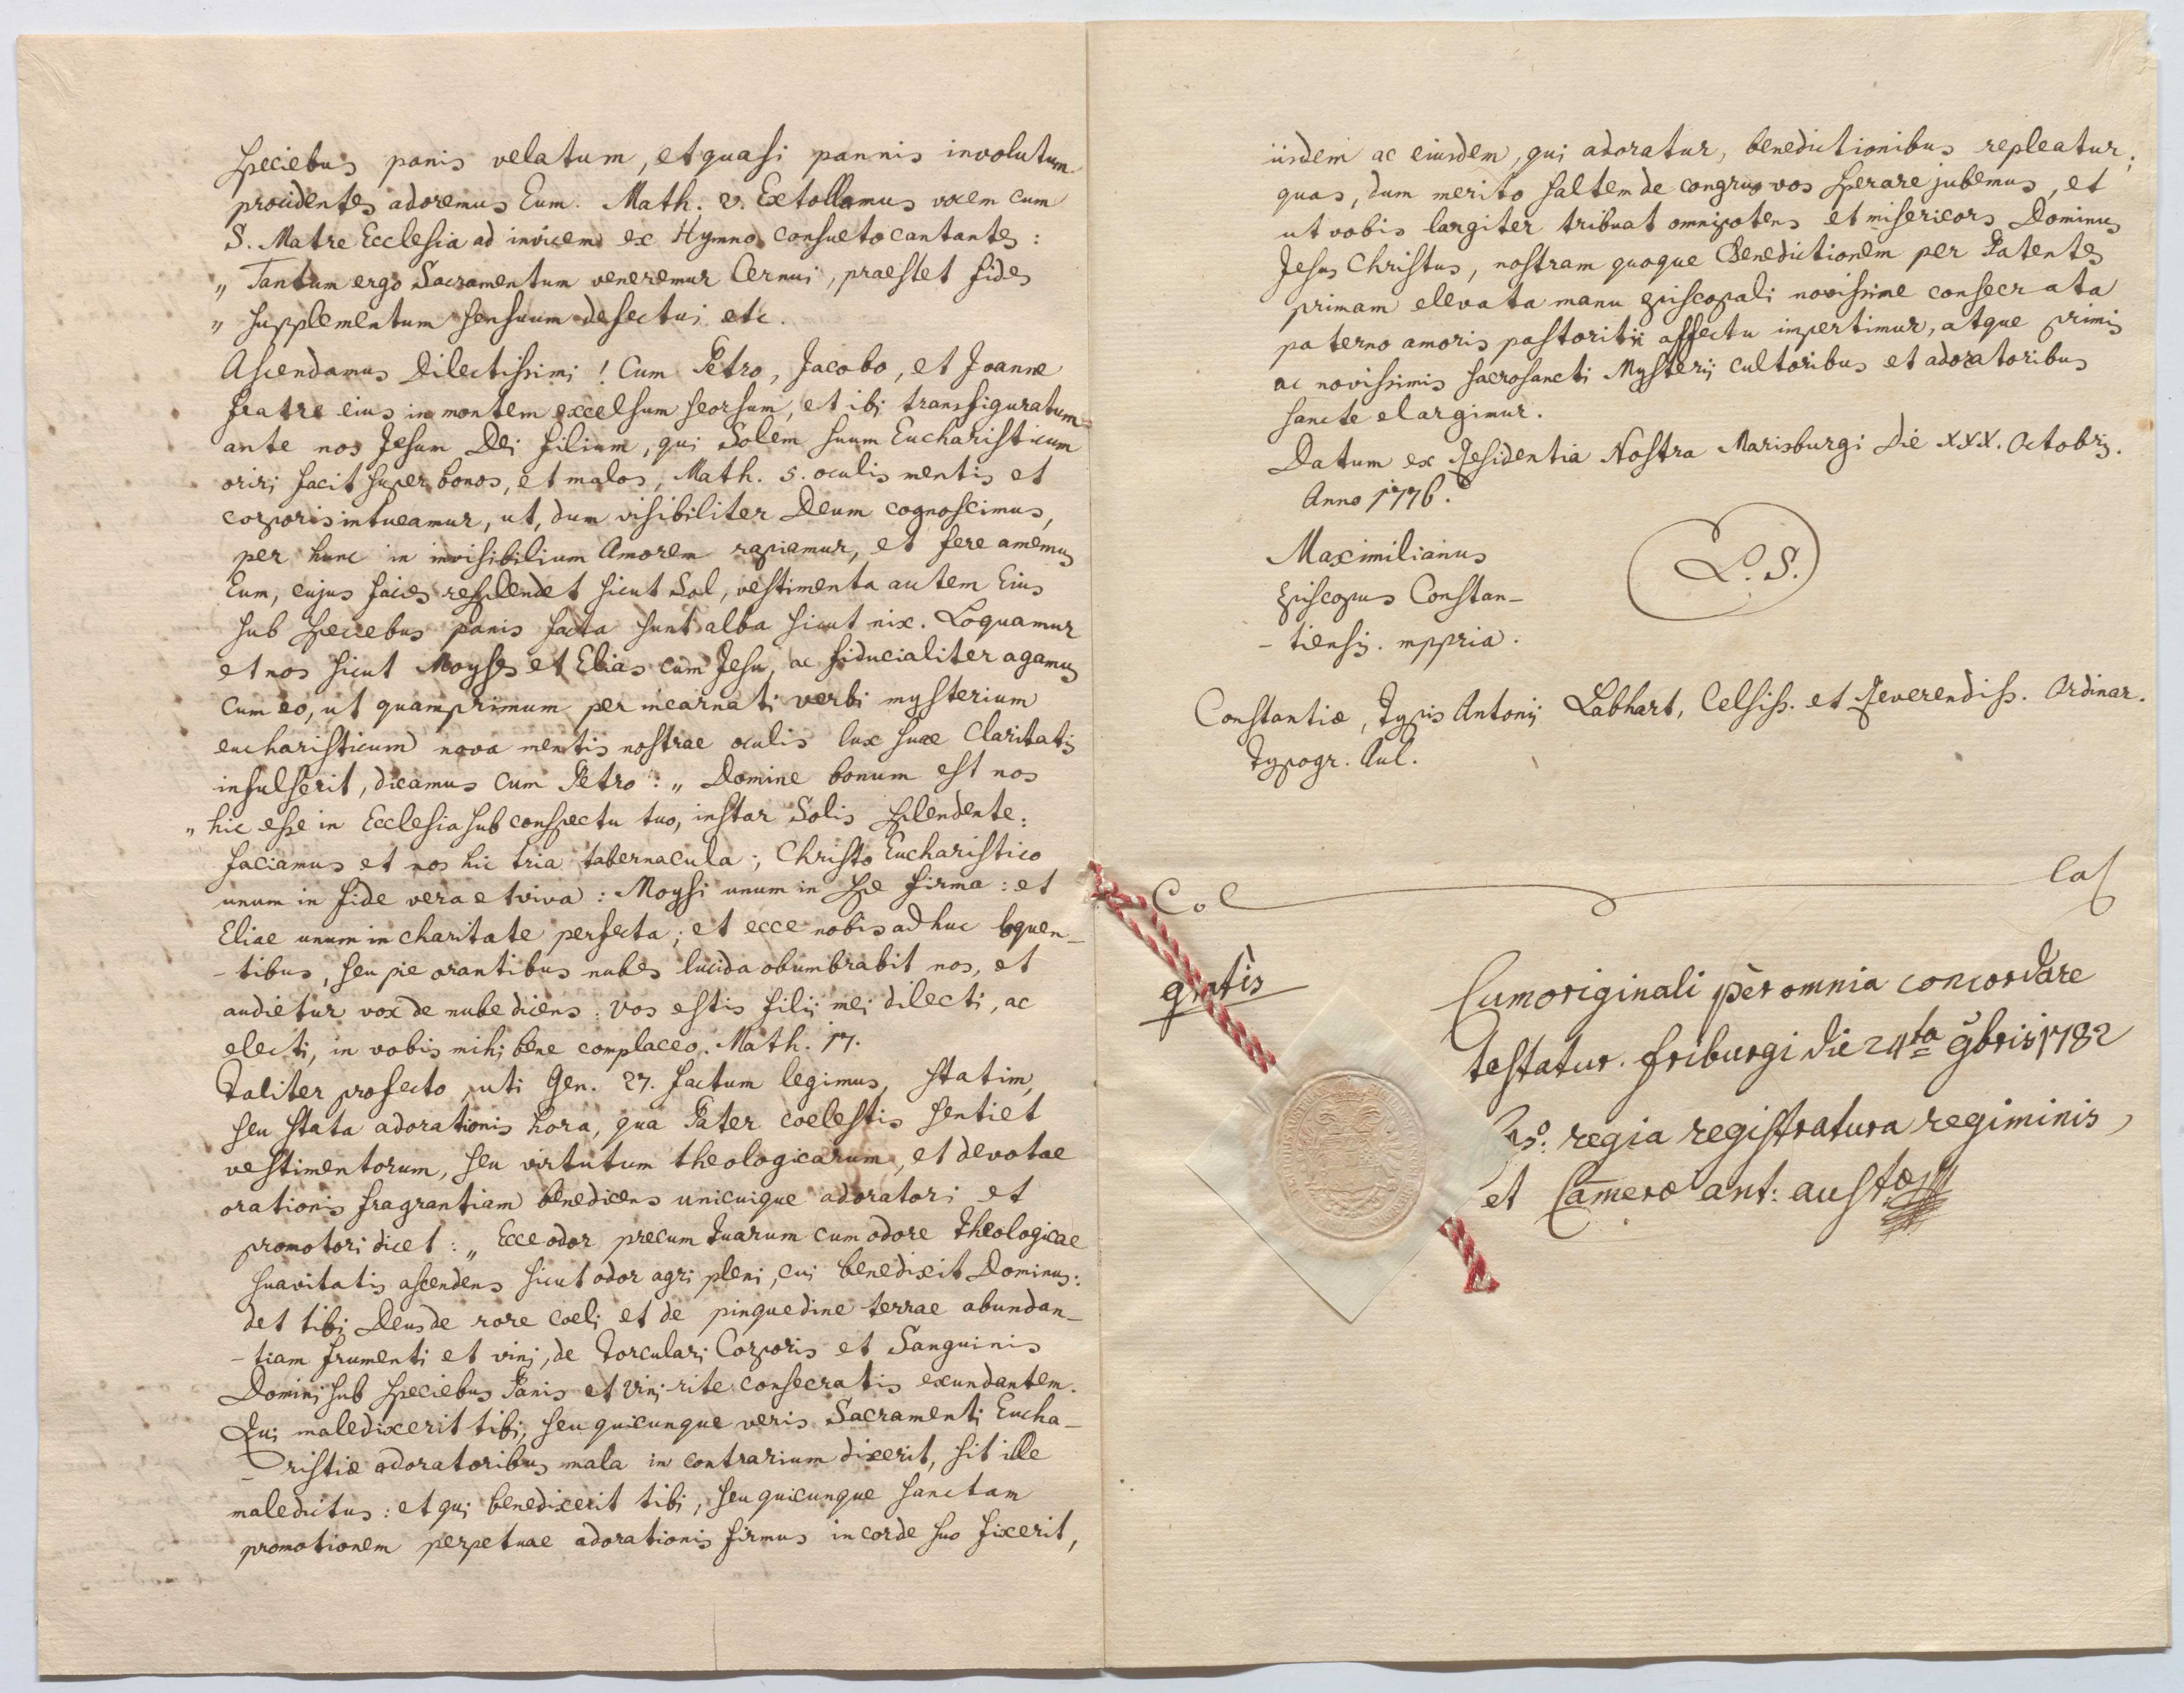 speciebus panis velatum, et quasi pannis involutum
procidentes adoremus Eum. Math. 2. Extollamus vocem cum
S. Matre Ecclesia ad invicem ex Hymno consueto cantantes:
„ Tantum ergo Sacramentum veneremur Cernui, praestet fides
„ supplementum sensuum defectui etc.
Ascendamus Dilectissimi! Cum Petro, Jacobo, et Joanne
fratre eius in montem excelsum seorsum, et ibi transfiguratum
ante nos Jesum Dei filium, qui Solem suum Eucharisticum
oriri facit super bonos, et malos, Math. 5. oculis mentis et
corporis intueamur, ut, dum visibiliter Deum cognoscimus,
per hunc in invisibilium Amorem rapiamur, et fere amemus
Eum, cujus facies resplendet sicut Sol, vestimenta autem Eius
sub speciebus panis facta sunt alba sicut nix. Loquamur
et nos sicut Moyses et Elias cum Jesu, ac fiducialiter agamus
cum eo, ut quamprimum per incarnati verbi mysterium
eucharisticum nova mentis nostrae oculis lux suae Claritatis
infulserit, dicamus cum Petro: „ Domine bonum est nos
„ hic esse in Ecclesia sub conspectu tuo, instar Solis splendente:
faciamus et nos hic tria tabernacula; Christo Eucharistico
unum in fide vera et viva: Moysi unum in spe firma: et
Eliae unum in charitate perfecta; et ecce nobis adhuc loquen-
-tibus, seu pie orantibus nubes lucida obumbrabit nos, et
audietur vox de nube dicens: Vos estis filii mei dilecti, ac
electi, in vobis mihi bene complaceo. Math. 17.
Taliter profecto, uti Gen. 27. factum legimus, statim,
seu stata adorationis hora, qua Pater coelestis sentiet
vestimentorum, seu virtutum theologicarum, et devotae
orationis fragrantiam benedicens unicuique adoratori et
promotori dicet: „ Ecce odor precum tuarum cum odore theologicae
suavitatis ascendens sicut odor agri pleni, cui benedixit Dominus:
det tibi Deus de rore coeli et de pinguedine terrae abundan-
-tiam frumenti et vini, de Torculari Corporis et Sanguinis
Domini sub speciebus Panis et Vini rite consecratis exundantem.
Qui maledixerit tibi, seu quicunque veris Sacramenti Eucha-
-ristiæ adoratoribus mala in contrarium dixerit, sit ille
maledictus: et qui benedixerit tibi, seu quicunque sanctam
promotionem perpetuae adorationis firmus in corde suo fixerit,
iisdem ac eiusdem, qui adoratur, benedictionibus repleatur;
quas, dum merito saltem de congruo vos sperare jubemus, et
ut vobis largiter tribuat omnipotens et misericors Dominus
Jesus Christus, nostram quoque Benedictionem per Patentes
primam elevata manu episcopali novissime consecrata
paterno amoris pastoritii affectu impertimur, atque primis
ac novissimis sacrosancti Mysterij cultoribus et adoratoribus
sancte elargimur.
Datum ex Residentia Nostra Marisburgi die XXX. Octobris.
Anno 1776.
Maximilianus
Episcopus Constan-
-tiensis. mppria.
L. S.
Constantiæ, Typis Antonij Labhart, Celsiss. et Reverendiss. Ordinar.
Typogr. Aul.
Col las
gratis
Cum originali per omnia concordare
testatur. friburgi die 24ta 9bris 1782
regia registratura regiminis
et Cameræ ant: austæ